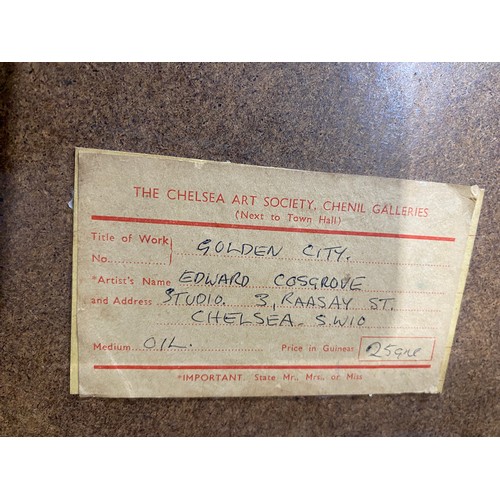 THE CHELSEA ART SOCIETY, CHENIL GALLERIES
(Next to Town Hall)
Title of Work GOLDEN CITY.
No.
*Artist's Name EDWARD COSGROVE
and Address STUDIO. 3, RAASAY ST.
CHELSEA. S.W10
Medium OIL. Price in Guineas 25gne
*IMPORTANT. State Mr., Mrs., or Miss